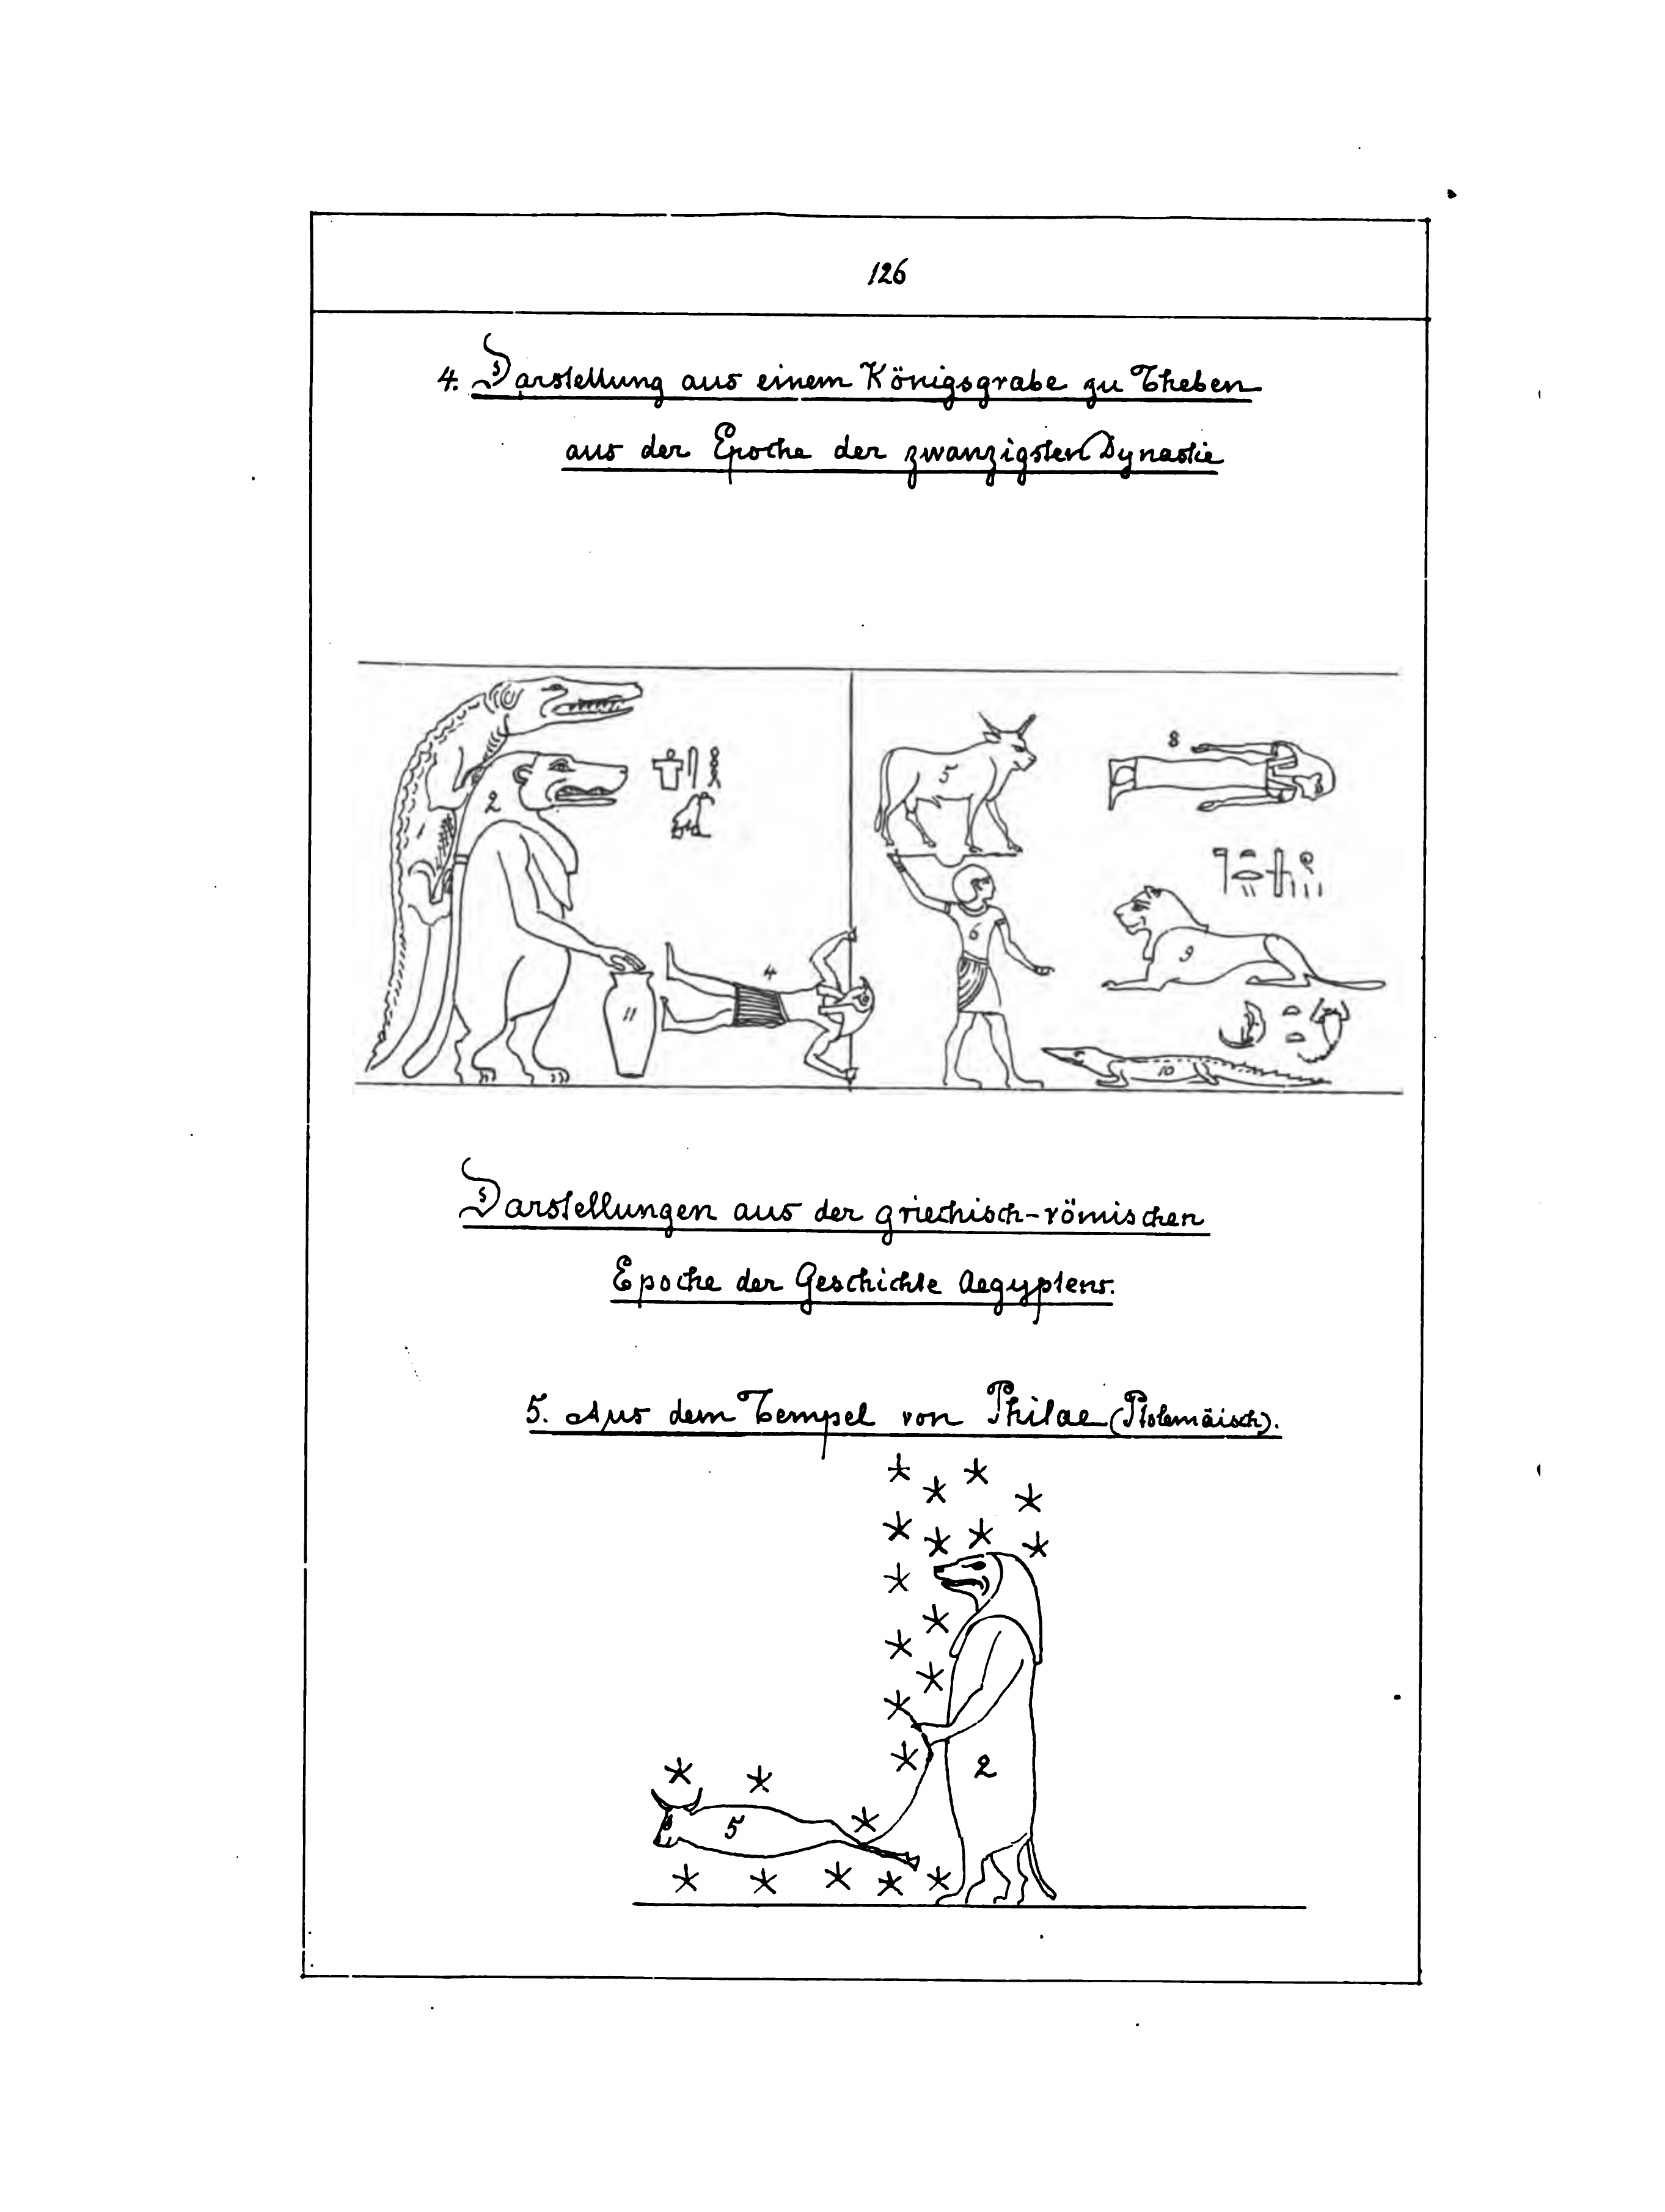 126
4. Darstellung aus einem Königsgrabe zu Theben
aus der Epoche der zwanzigsten Dynastie
2
1
11
4
5
6
8
9
10
Darstellungen aus der griechisch-römischen
Epoche der Geschichte Aegyptens.
5. Aus dem Tempel von Philae (Ptolemäisch).
2
5